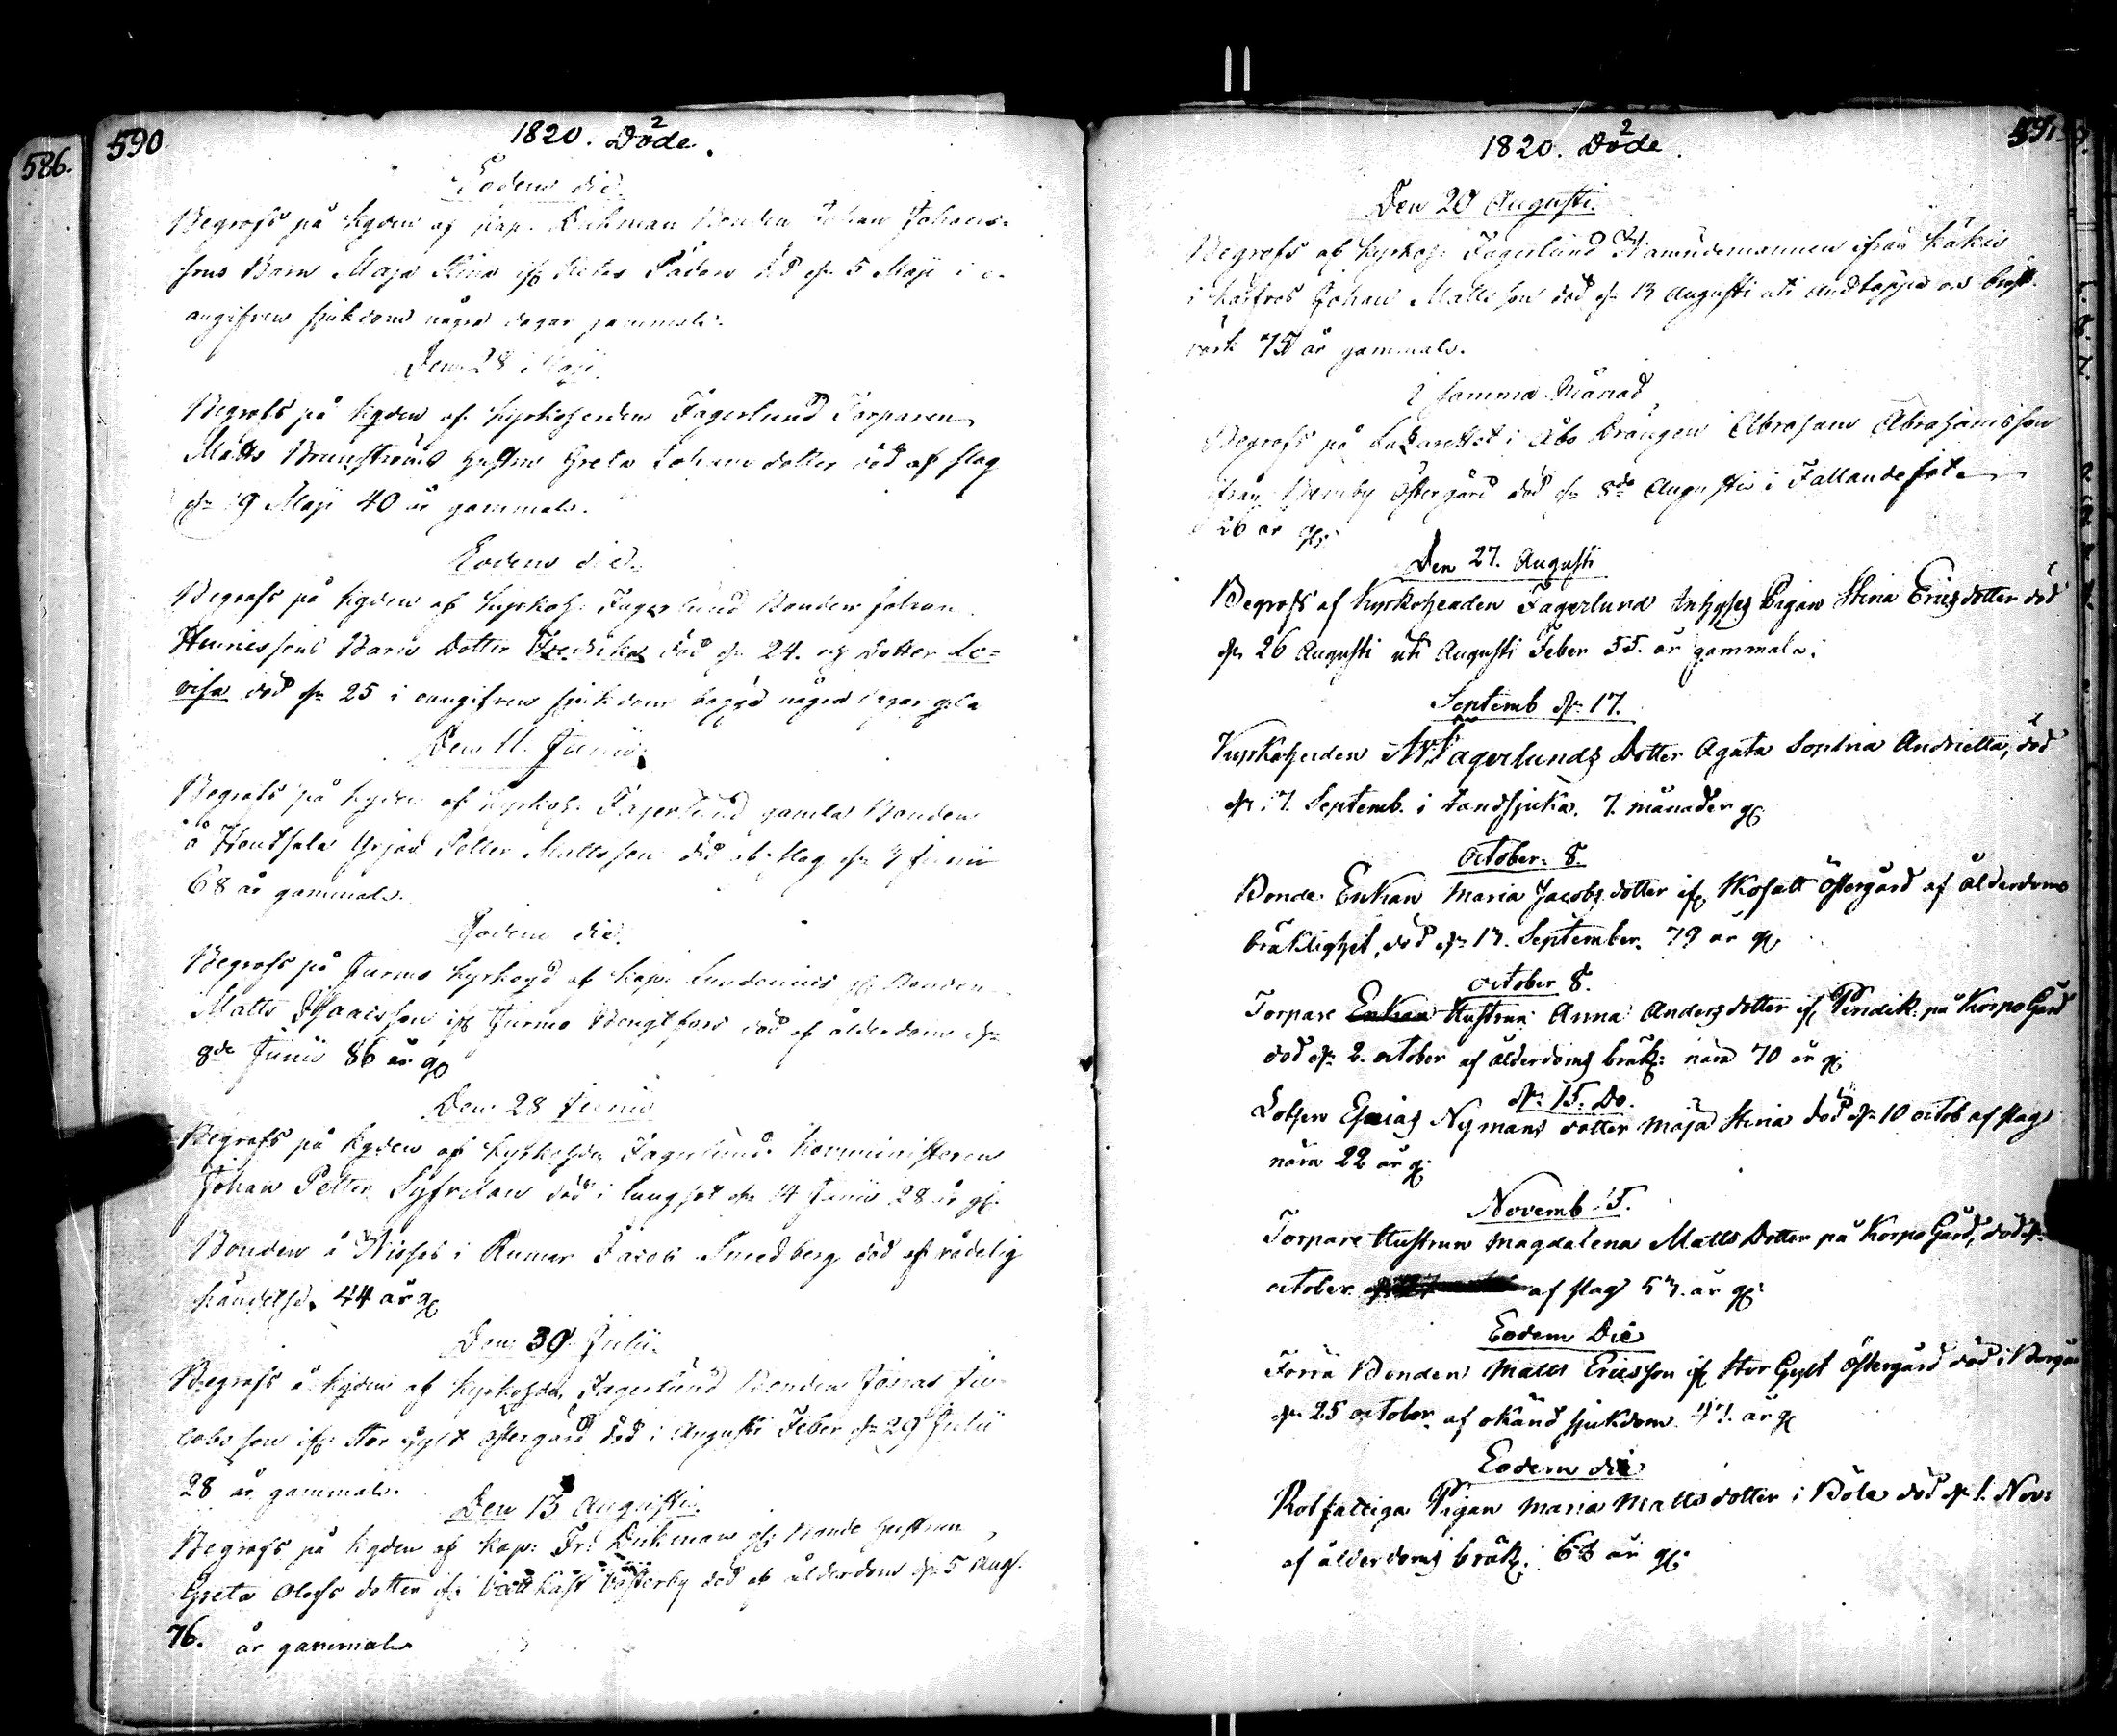 586.
590
1820. Döde.
Eodem die.
Begrofs på Kgden af Kap. Dickman Bonden Johan Johans-
sons Barn Maja Stina if: död d: 5 Maji i o-
angifven sjukdom några dagar gammalt.
Den 28 Maji
Begrofs på Kgden af Kyrkoherden Fagerlund Torparen
Matts Brunströms hustru Greta Johansdotter död af slag
d: 19 Maji 40 år gammal.
Eodem die.
Begrofs på Kgden af Kyrkoh: Fagerlund Bonden Johan
Henricssons Barn Dotter Fredrika död d: 24. og Dotter Lo-
visa död d: 25 i oangifven sjukdom begge några dagar gla
Den 11. Junii
Begrofs på Kgden af Kyrkoh: Fagerlund gamla Bonden
å Petter Mattsson död af slag d: 7 Junii
68 år gammal.
Eodem die.
Begrofs på Jurmo Kyrkogd af Kap: Lundenius gl: Bonden
Matts Isaacsson if: Jurmo död af ålderdom d:
8de Junii 86 år gl
Den 28 Junii
Begrofs på Kgden af Kyrkohden Fagerlund Komministern
Johan Petter död i lungsot d: 14 Junii 28 år gl:
Bonden å i Rumar Jacob Smedberg död af vådelig
händelse. 44 år gl
Den 30 Julii.
Begrofs å Kgden af Kyrkohden Fagerlund Bonden Jonas Ja-
cobsson if: Stor Gylt Östergård död i Augusti Feber d: 29 Julii
28 år gammal.
Den 13 Augusti.
Begrofs på Kgden af Kap: Fr: Dickman gl: Bonde hustrun
Greta Olofs dotter if: Vattkast Västerby död af ålderdom d: 5 Aug:
76. år gammal
591.
1820. Döde.
Den 20 Augusti.
Begrofs af Kyrkoh: Fagerlund Nämndemannen ifrån Käkis
i Johan Mattsson död d: 13 Augusti uti andtäppa och bröst-
värk 75 år gammal.
I samma Månad
Begrofs på Lazarettet i Åbo Drängen Abraham Abrahamsson
ifrån Östergård död d: 8de Augusti i Fallandesot
26 år gl:
Den 27. Augusti
Begrofs af Kyrkoherden Fagerlund Inhyses Pigan Stina Ericsdotter död
d: 26 Augusti uti Augusti Feber 55. år gammal.
Septemb d: 17.
Kyrkoherden Fagerlunds Dotter Agata Sophia Andrietta, död
d: 7. Septemb. i Tandsjuka. 7. månader gl:
October. 8.
Bonde Enkan Maria Jacobs dotter if: Östergård af ålderdoms
bräklighet, död d: 13. September. 79 år gl,
october 8.
Torpare Enkan Hustrun Anna Anders dotter if: på Korpo Gård
död d: 2. october af ålderdoms bräk: nära 70 år gl:
d: 15. Do.
Lotsen Esaias Nymans dotter Maja Stina död d: 10 octob af slag
nära 22 år gl:
Novemb. 5.
Torpare Hustrun Magdalena Matts Dotter på Korpo Gård, död d:
october af slag 53. år gl:
Eodem Die
Förra Bonden Matts Ericsson if: Stor Gylt Östergård död i Borgå
d: 25 october af okänd sjukdom. 47. år gl
Eodem die
Rotfattiga Pigan Maria Matts dotter i Böle död d: 1. Nov:
af ålderdoms bräk: 68 år gl: